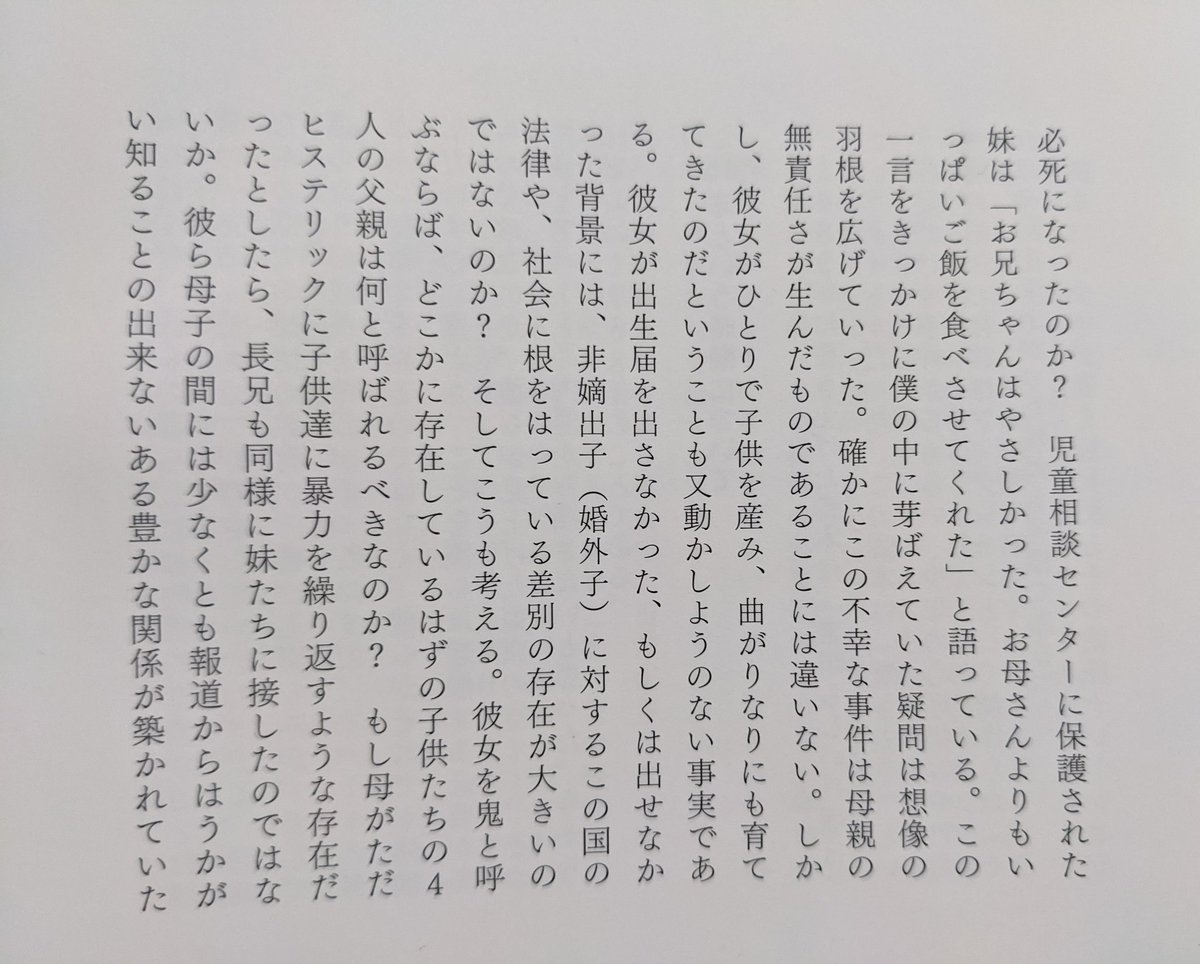 必死になったのか？　児童相談センターに保護された
妹は「お兄ちゃんはやさしかった。お母さんよりもい
っぱいご飯を食べさせてくれた」と語っている。この
一言をきっかけに僕の中に芽ばえていた疑問は想像の
羽根を広げていった。確かにこの不幸な事件は母親の
無責任さが生んだものであることには違いない。しか
し、彼女がひとりで子供を産み、曲がりなりにも育て
てきたのだということも又動かしようのない事実であ
る。彼女が出生届を出さなかった、もしくは出せなか
った背景には、非嫡出子（婚外子）に対するこの国の
法律や、社会に根をはっている差別の存在が大きいの
ではないのか？　そしてこうも考える。彼女を鬼と呼
ぶならば、どこかに存在しているはずの子供たちの４
人の父親は何と呼ばれるべきなのか？　もし母がただ
ヒステリックに子供達に暴力を繰り返すような存在だ
ったとしたら、長兄も同様に妹たちに接したのではな
いか。彼ら母子の間には少なくとも報道からはうかが
い知ることの出来ないある豊かな関係が築かれていた